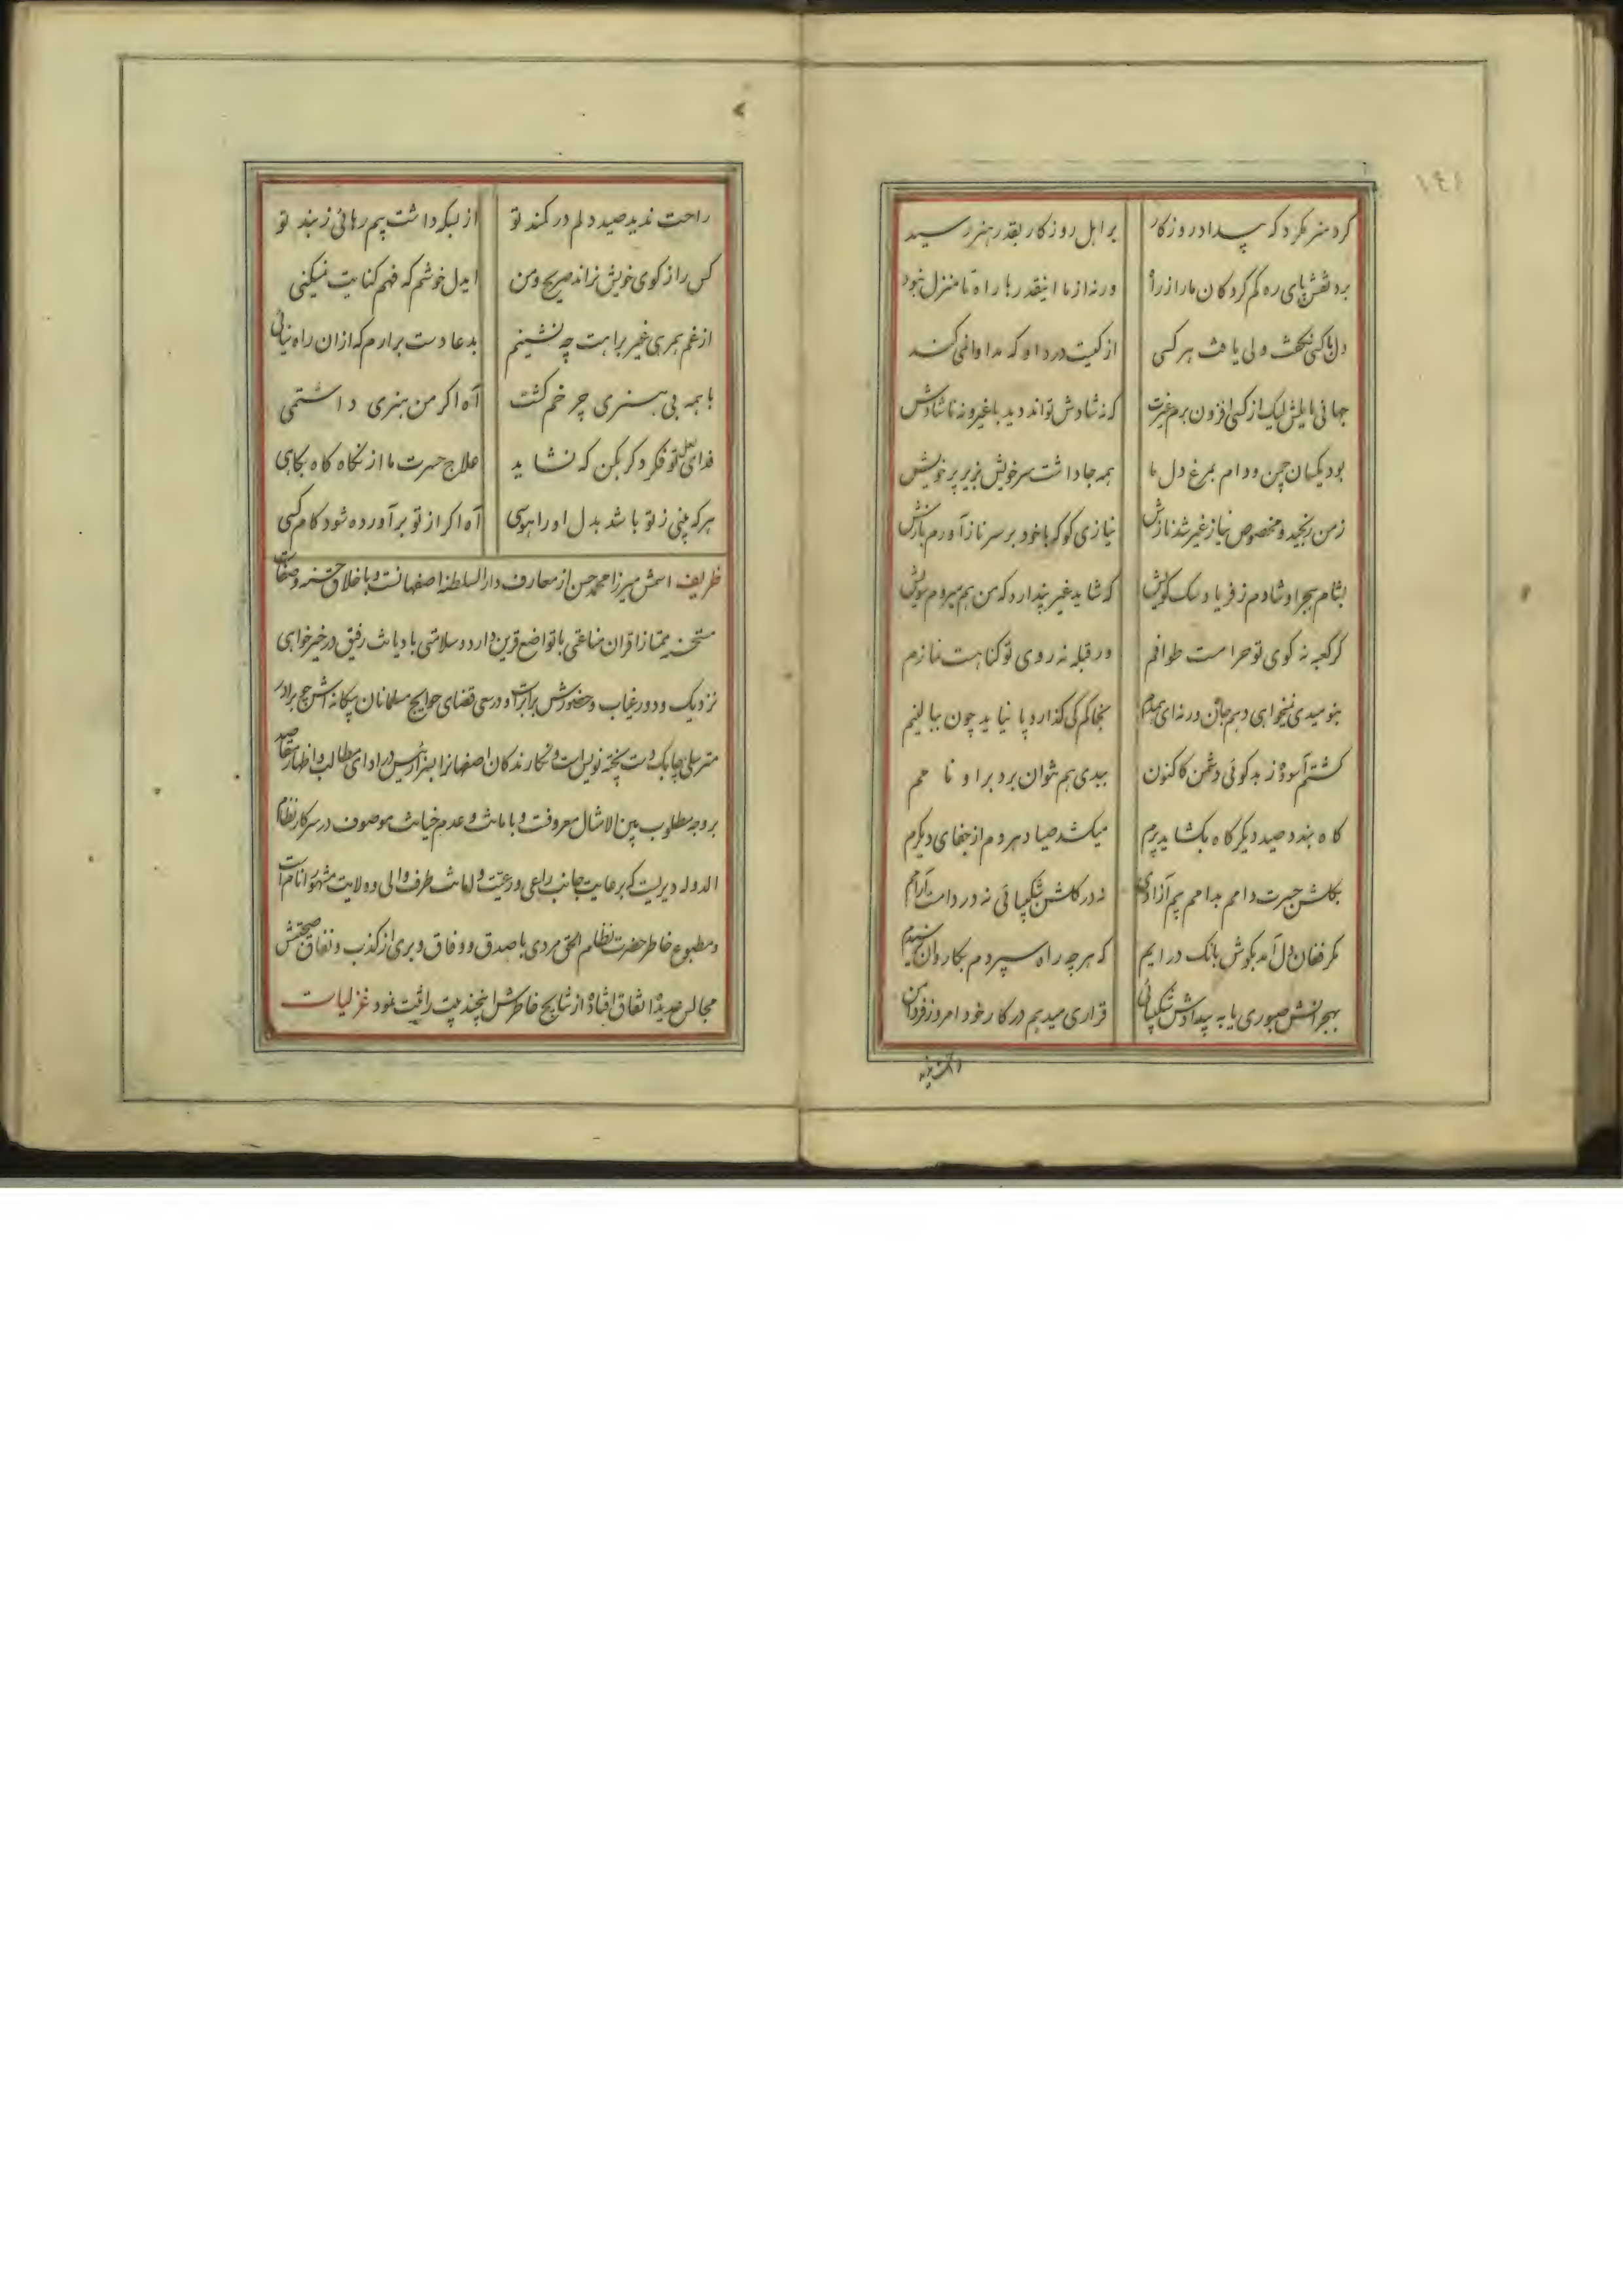 ١٤١
کرد هنر مگرد که بیداد روزگار بر اهل روزگار بقدر هنر رسید
برد نقش پای ره گم کردگان ما را ز راه ورنه از ما اینقدرها راه تا منزل نبود
دل با کسی نگفت ولی یافت هر کسی از کیست درد او که مداوا نمی‌کند
جهانی مایلش لیک از کسی افزون برم غیرت که نه شادش تواند دید با غیر و نه ناشادش
بود یکسان چمن و دام بمرغ دل ما همه جا داشت سر خویش بزیر پر خویش
ز من رنجید و مخصوص نیاز غیر شد نازش نیازی کو که با خود بر سر ناز آورم بازش
بشام هجر او شادم ز فریاد سگ کویش که شاید غیر پندارد که من هم میروم سویش
گر کعبه نه کوی تو حرامست طوافم ور قبله نه روی تو گناهست نمازم
بنومیدی نمیخواهی دهم جان ورنه ای همدم بخاکم کی گذارد پا نیاید چون ببالینم
گشتم آسوده ز بدگوئی دشمن کاکنون ببدی هم نتوان برد بر او نامم
گاه بندد صید دیگر گاه بگشاید پرم میکشد صیاد هر دم از جفای دیگرم
بگلشن حسرت دامم بدامم بیم آزادی نه در گلشن شکیبائی نه در دامست آرامم
مگر فغان دل آمد بگوش بانگ درایم که هر چه راه سپردم بکاروان نرسیدم
بهجرانش صبوری یا به بیدادش شکیبائی قراری میدهم در کار خود امروز و فردا من
راحت ندید صید دلم در کمند تو از بسکه داشت بیم رهائی ز بند تو
کس را ز کوی خویش نراند صریح و من ایدل خوشم که فهم کنایت نمیکنی
از غم همرهی غیر براهت چه نشینم بدعا دست برارم که ازان راه نیائی
با همه بی هنری چرخم کشت آه اگر من هنری داشتمی
فدای لعل تو فکر دگر بکن که نشاید علاج حسرت ما از نگاه گاه بگاهی
هر که بینی ز تو باشد بدل او را هوسی آه اگر از تو بر آورده شود کام کسی
ظریف اسمش میرزا محمد حسن از معارف دار السلطنه اصفهانست و باخلاق حسنه و صفات
مستحسنه ممتاز اقران مناعتی با تواضع قرین دارد و سلامتی با دیانت رفیق در خیرخواهی
نزدیک و دور غیاب و حضورش برابر است و در سعی قضای حوایج مسلمانان بیگانه اش چو برادر
مترسلی چابک دست پخته نویس است و نگارندگان اصفهانرا بسزا رئیس در ادای مطالب و اظهار مقاصد
بر وجه مطلوب بین الامثال معروفست و بامانت و عدم خیانت موصوف در سرکار نظام
الدوله دیریست که برعایت جانب راعی و رعیت و امانت طرف والی و ولایت مشهور انام است
و مطبوع خاطر حضرت نظام الحق مردی با صدق و وفاق و بری از کذب و نفاق صحبتش
مجالس عدیده اتفاق افتاده از نتایج خاطرش این چند بیت را ثبت نمود غزلیات